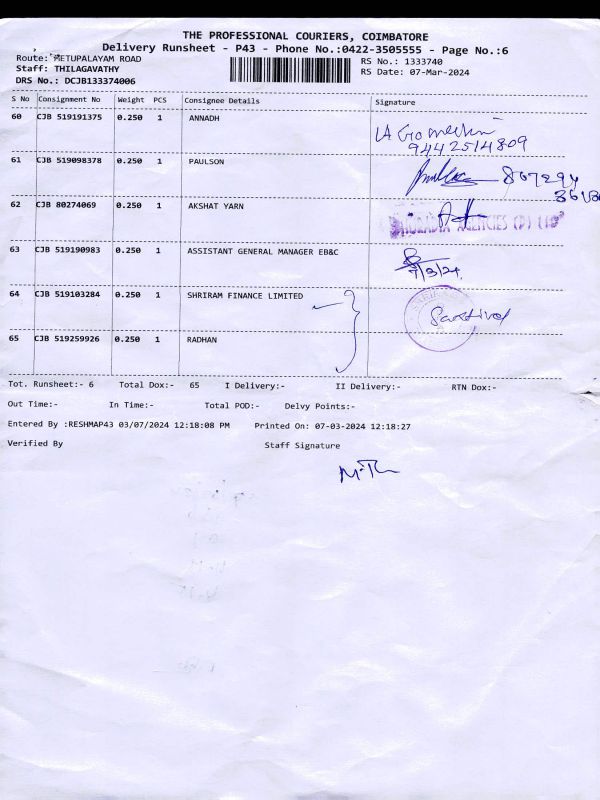 THE PROFESSIONAL COURIERS, COIMBATORE
Delivery Runsheet - P43 - Phone No.:0422-3505555 - Page No.:6
Route: METUPALAYAM ROAD
Staff: THILAGAVATHY
DRS No.: DCJB133374006
RS No.: 1333740
RS Date: 07-Mar-2024
S No Consignment No Weight PCS Consignee Details Signature
60 CJB 519191375 0.250 1 ANNADH
9442514809
61 CJB 519098378 0.250 1 PAULSON
62 CJB 80274069 0.250 1 AKSHAT YARN
AGENCIES (P) LTD
63 CJB 519190983 0.250 1 ASSISTANT GENERAL MANAGER EB&C
7/3/24
64 CJB 519103284 0.250 1 SHRIRAM FINANCE LIMITED
65 CJB 519259926 0.250 1 RADHAN
Tot. Runsheet:- 6 Total Dox:- 65 I Delivery:- II Delivery:- RTN Dox:-
Out Time:- In Time:- Total POD:- Delvy Points:-
Entered By :RESHMAP43 03/07/2024 12:18:08 PM Printed On: 07-03-2024 12:18:27
Verified By Staff Signature